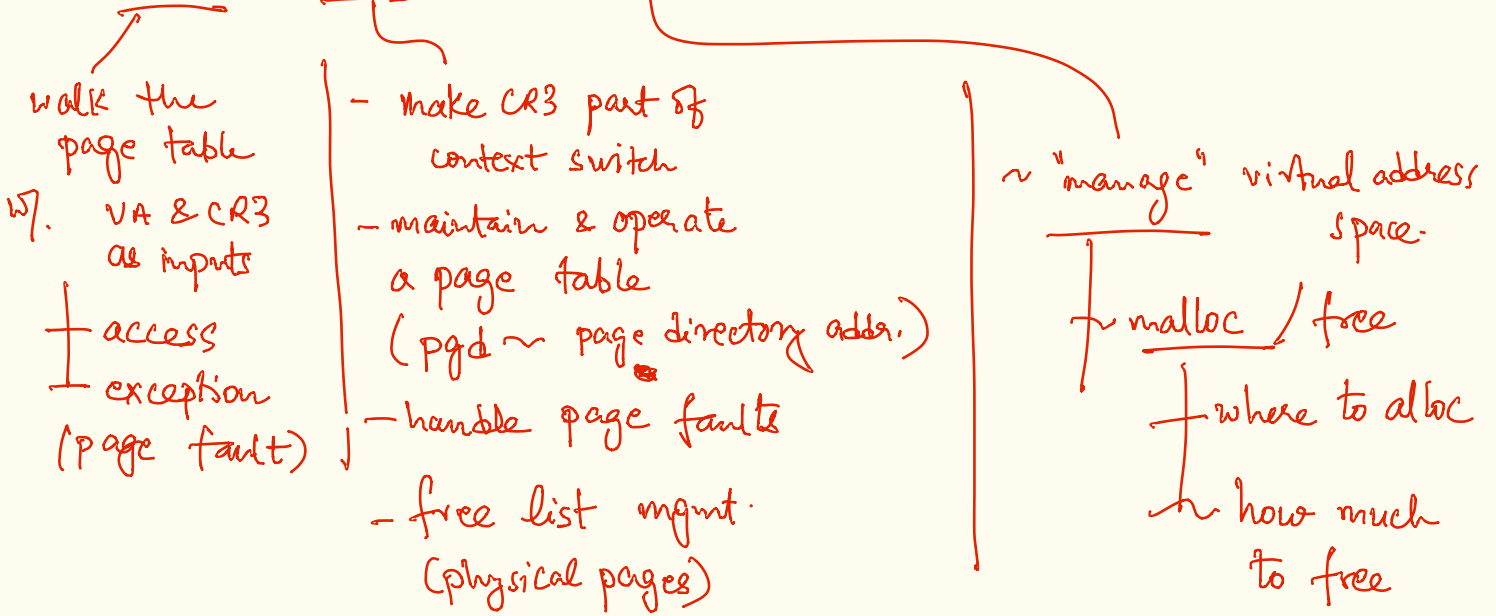 walk the
page table
w/. VA & CR3
as inputs
access
exception
(page fault)
- make CR3 part of
context switch
- maintain & operate
a page table
(pgd ~ page directory addr.)
- handle page faults
- free list mgmt.
(physical pages)
~ "manage" virtual address
space.
malloc / free
where to alloc
how much
to free